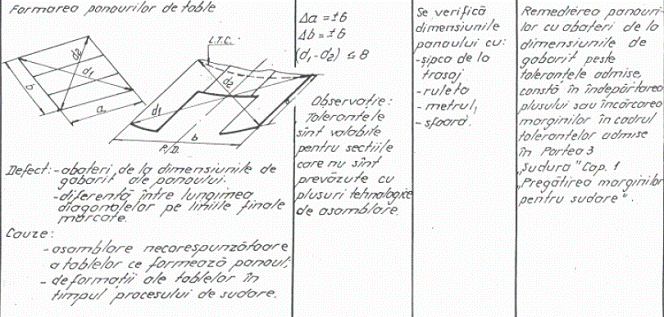 Formarea panourilor de table
a
b
d1
d2
L.T.C.
d1
d2
b
P/D.
Defect: - abateri de la dimensiunile de
gabarit ale panoului.
- diferență între lungimea
diagonalelor pe liniile finale
marcate.
Cauze:
- asamblare necorespunzătoare
a tablelor ce formează panoul;
- deformații ale tablelor în
timpul procesului de sudare.
Δa = ±6
Δb = ±6
(d₁-d₂) ≤ 8
Observație:
Toleranțele
sînt valabile
pentru secțiile
care nu sînt
prevăzute cu
plusuri tehnologice
de asamblare.
Se verifică
dimensiunile
panoului cu:
- șipca de la
trasaj
- ruleta
- metrul,
- sfoară.
Remedierea panouri-
lor cu abateri de la
dimensiunile de
gabarit peste
toleranțele admise,
constă în îndepărtarea
plusului sau încărcarea
marginilor în cadrul
toleranțelor admise
în Partea 3
„Sudura" Cap. 1
„Pregătirea marginilor
pentru sudare".